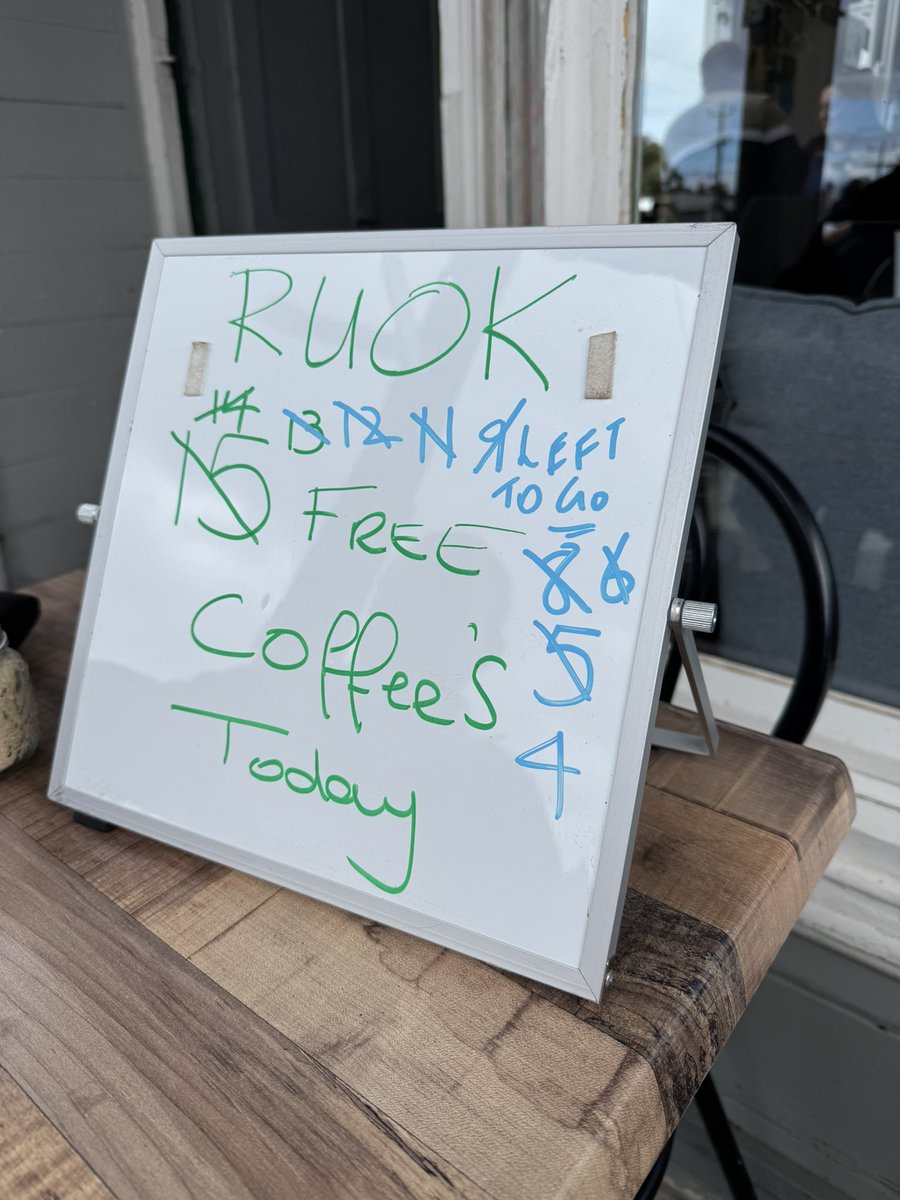 RUOK
14 13 12 11 9 LEFT
TO GO
15 FREE
8 6
Coffee's
5
Today
4